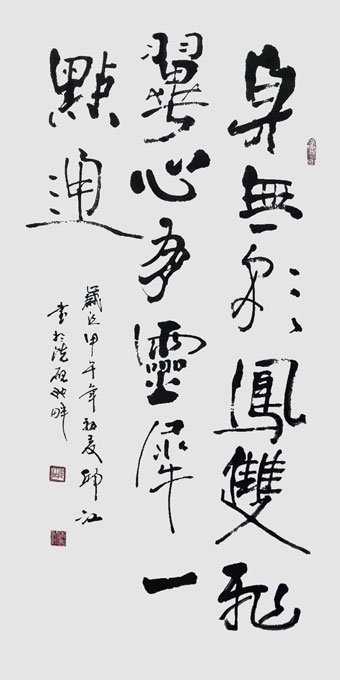 身無彩鳳雙飛
翼心有靈犀一
點通
歲在甲午年初夏 江
書於洗硯池畔